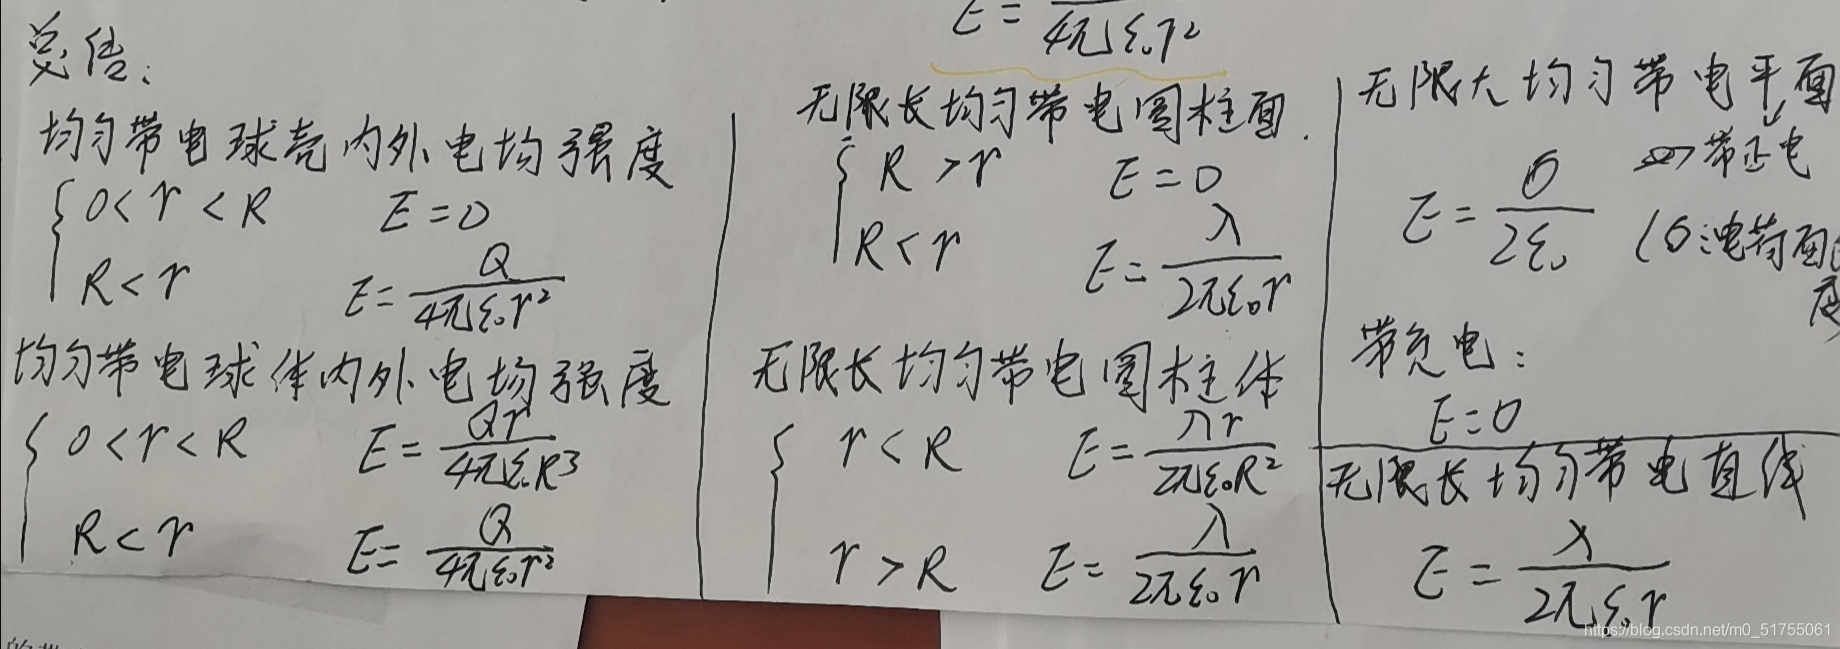 E = 4π ε₀ r²
总结:
均匀带电球壳内外电均强度
0 < r < R E = 0
R < r E = Q / 4π ε₀ r²
均匀带电球体内外电场强度
0 < r < R E = Qr / 4π ε₀ R³
R < r E = Q / 4π ε₀ r²
无限长均匀带电圆柱面.
R > r E = 0
R < r E = λ / 2π ε₀ r
无限长均匀带电圆柱体
r < R E = λr / 2π ε₀ R²
r > R E = λ / 2π ε₀ r
无限大均匀带电平面
=> 带正电
E = σ / 2ε₀ (σ:电荷面
度
带负电:
E = 0
无限长均匀带电直线
E = λ / 2π ε₀ r
的带
https://blog.csdn.net/m0_51755061